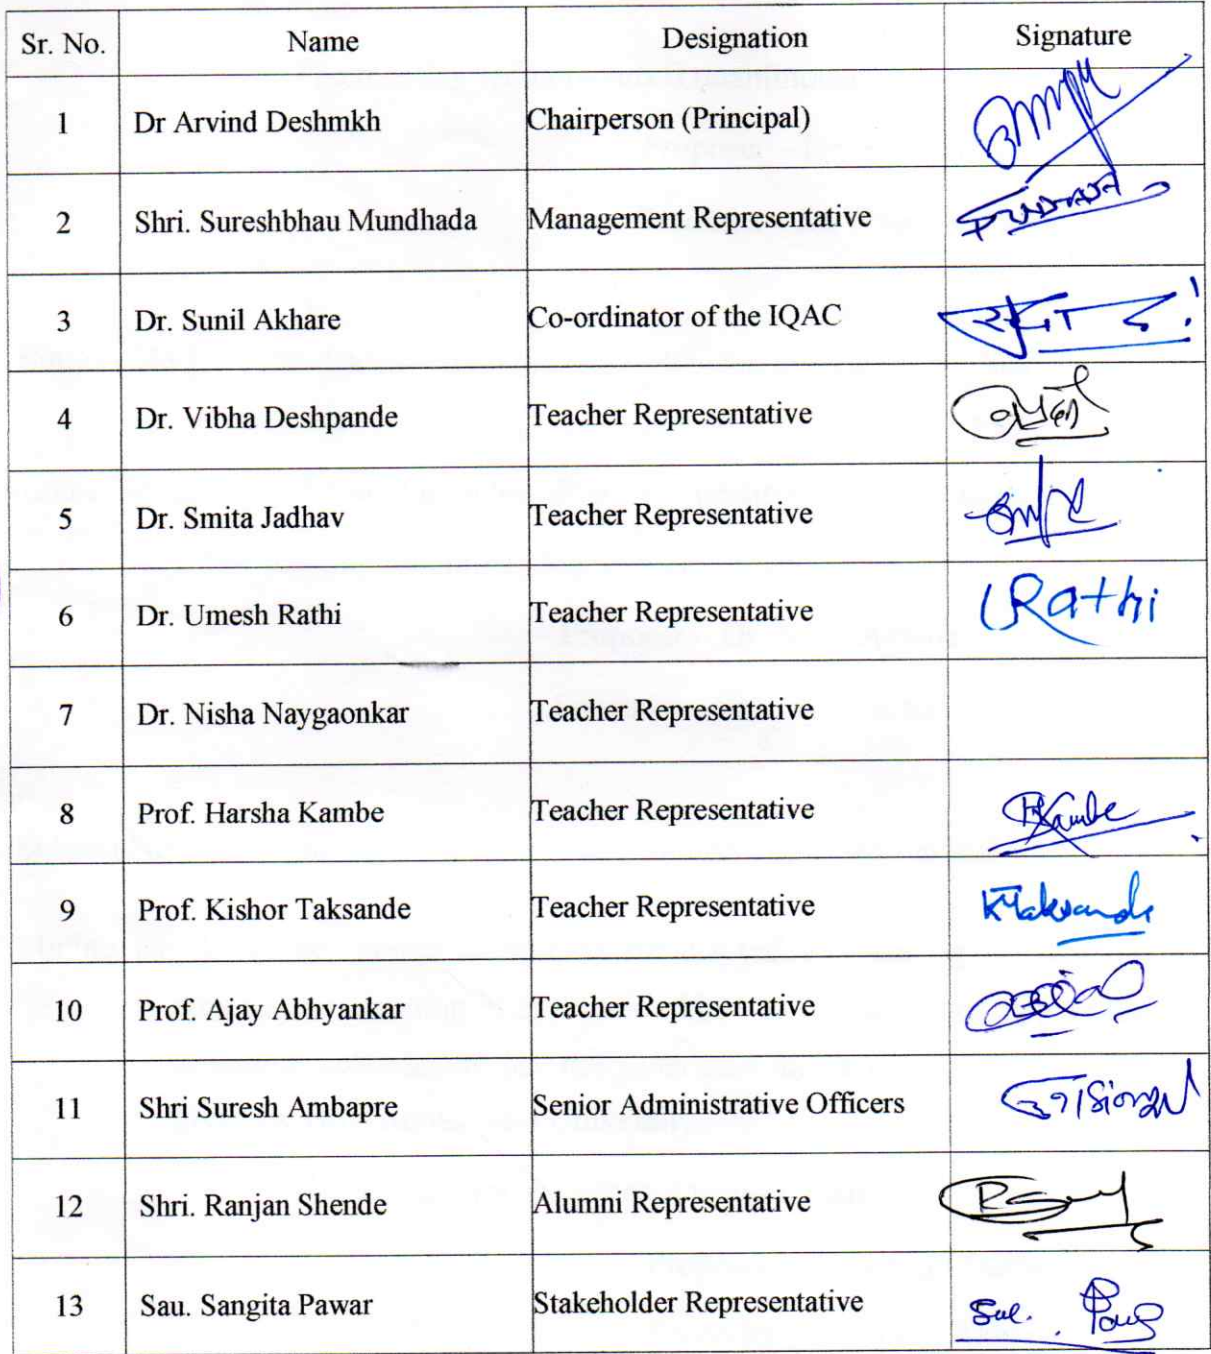 Sr. No. Name Designation Signature
1 Dr Arvind Deshmkh Chairperson (Principal)
2 Shri. Sureshbhau Mundhada Management Representative
3 Dr. Sunil Akhare Co-ordinator of the IQAC
4 Dr. Vibha Deshpande Teacher Representative
5 Dr. Smita Jadhav Teacher Representative
6 Dr. Umesh Rathi Teacher Representative Rathi
7 Dr. Nisha Naygaonkar Teacher Representative
8 Prof. Harsha Kambe Teacher Representative Kambe
9 Prof. Kishor Taksande Teacher Representative KTaksande
10 Prof. Ajay Abhyankar Teacher Representative
11 Shri Suresh Ambapre Senior Administrative Officers
12 Shri. Ranjan Shende Alumni Representative
13 Sau. Sangita Pawar Stakeholder Representative